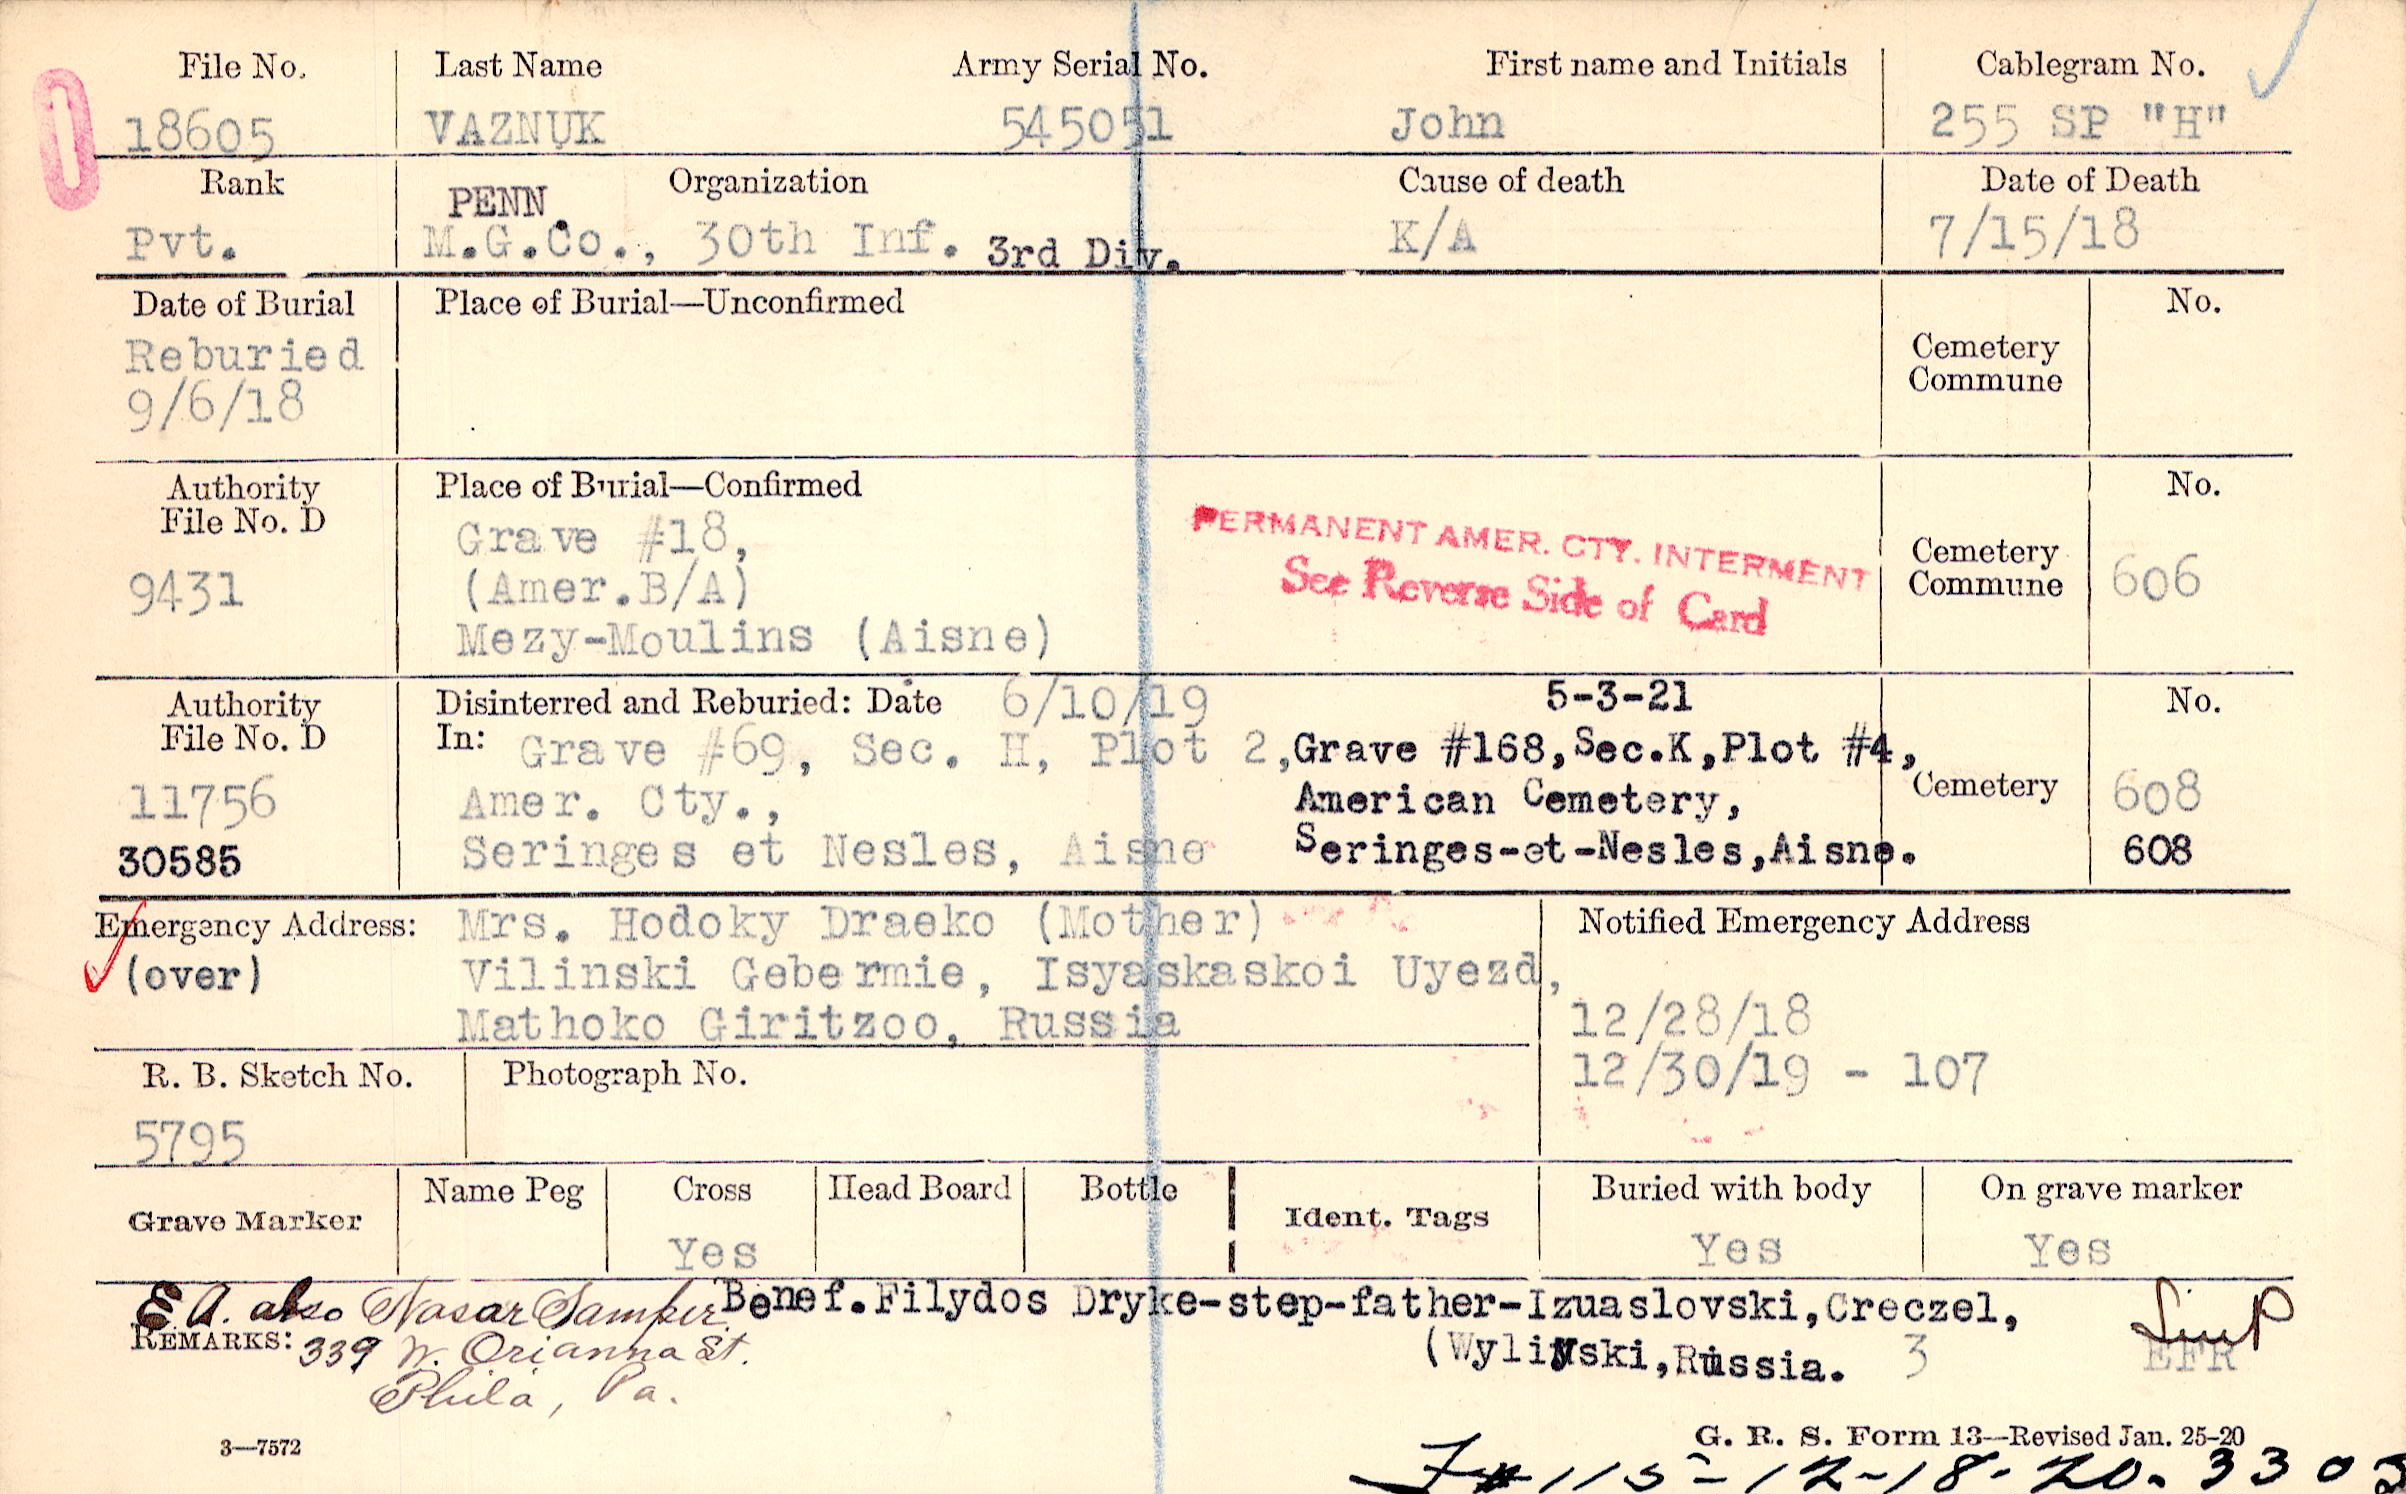 File No. Last Name Army Serial No. First name and Initials Cablegram No.
18605 VAZNUK 545051 John 255 SP "H"
Rank Organization Cause of death Date of Death
PENN.
Pvt. M.G.Co., 30th Inf. 3rd Div. K/A 7/15/18
Date of Burial Place of Burial—Unconfirmed No.
Reburied
9/6/18
Cemetery
Commune
Authority
File No. D
9431
Place of Burial—Confirmed No.
Grave #18,
(Amer.B/A)
Mezy-Moulins (Aisne)
PERMANENT AMER. CTY. INTERMENT
See Reverse Side of Card
Cemetery
Commune 606
Authority
File No. D
11756
30585
Disinterred and Reburied: Date 6/10/19
In: Grave #69, Sec. H, Plot 2,
Amer. Cty.,
Seringes et Nesles, Aisne
5-3-21
Grave #168,Sec.K,Plot #4,
American Cemetery,
Seringes-et-Nesles,Aisne.
No.
Cemetery 608
608
Emergency Address: Mrs. Hodoky Draeko (Mother)
(over) Vilinski Gebermie, Isyaskaskoi Uyezd,
Mathoko Giritzoo, Russia
Notified Emergency Address
12/28/18
12/30/19 - 107
R. B. Sketch No. Photograph No.
5795
Grave Marker Name Peg Cross Head Board Bottle Ident. Tags Buried with body On grave marker
Yes Yes Yes
E. A. also Nasar Samfir Benef.Filydos Dryke-step-father-Izuaslovski,Creczel,
REMARKS: 339 N. Orianna St. (Wylinski,Russia. 3 EFR
Phila, Pa.
3—7572
G. R. S. Form 13—Revised Jan. 25-20
#115-12-18-20. 3303